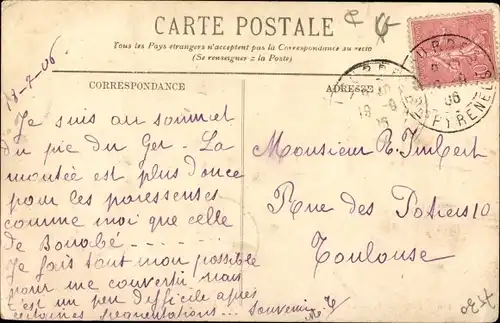 CARTE POSTALE
Tous les Pays étrangers n'acceptent pas la Correspondance au recto
(Se renseigner à la Poste)
CORRESPONDANCE
ADRESSE
18-7-06
Je suis au sommet
du pic du Ger - La
montée est plus douce
pour les paresseuses
comme moi que celle
de Bonabé - - - - -
Je fais tout mon possible
pour me convertir, mais
c'est un peu difficile après
certaines fréquentations... Souvenir
Monsieur R. Imbert
Rue des Potiers 10
Toulouse
06
PYRENEES